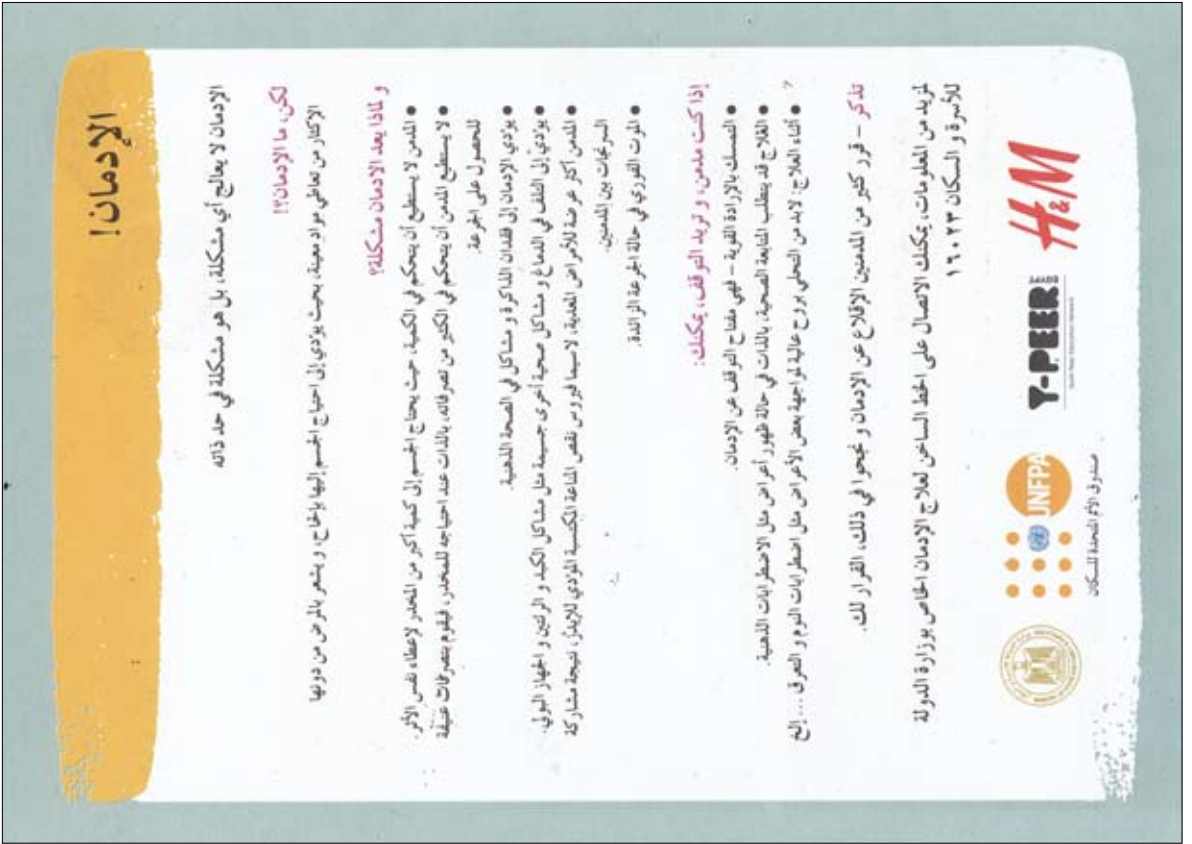 الإدمان!
الإدمان لا يعالج أي مشكلة، بل هو مشكلة في حد ذاته
لكن، ما الإدمان؟!
الإكثار من تعاطي مواد معينة، بحيث يؤدي إلى احتياج الجسم إليها بإلحاح، و يشعر بالمرض من دونها
و لماذا يعد الادمان مشكلة؟
● المدمن لا يستطيع أن يتحكم في الكمية، حيث يحتاج الجسم إلى كمية أكبر من المخدر لإعطاء نفس الأثر.
● لا يستطيع المدمن أن يتحكم في الكثير من تصرفاته، بالذات عند احتياجه للمخدر، فيقوم بتصرفات عنيفة
للحصول على الجرعة.
● يؤدي الإدمان إلى فقدان الذاكرة و مشاكل في الصحة الذهنية.
● يؤدي إلى التلف في الدماغ و مشاكل صحية أخرى جسيمة مثل مشاكل الكبد و الرئتين و الجهاز البولي.
● المدمن أكثر عرضة للأمراض المعدية، لاسيما فيروس نقص المناعة المكتسبة المؤدي للإيدز، نتيجة مشاركة
السرنجات بين المدمنين.
● الموت الفوري في حالة الجرعة الزائدة.
إذا كنت مدمن، و تريد التوقف، يمكنك:
● التمسك بالإرادة القوية – فهي مفتاح التوقف عن الإدمان.
● العلاج قد يتطلب المتابعة الصحية، بالذات في حالة ظهور أعراض مثل الاضطرابات الذهنية.
● أثناء العلاج: لابد من التحلي بروح عالية لمواجهة بعض الأعراض مثل اضطرابات النوم و التعرق ... إلخ
تذكر – قرر كثير من المدمنين الإقلاع عن الإدمان و نجحوا في ذلك، القرار لك.
لمزيد من المعلومات، يمكنك الاتصال على الخط الساخن لعلاج الإدمان الخاص بوزارة الدولة
للأسرة و السكان ١٦٠٢٣
H&M
Y-PEER
UNFPA
صندوق الأمم المتحدة للسكان